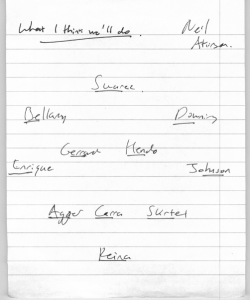 What I think we'll do.
Neil
Atkinson.
Suarez.
Bellamy Downing
Gerrard Hendo
Enrique Johnson
Agger Carra Skrtel
Reina